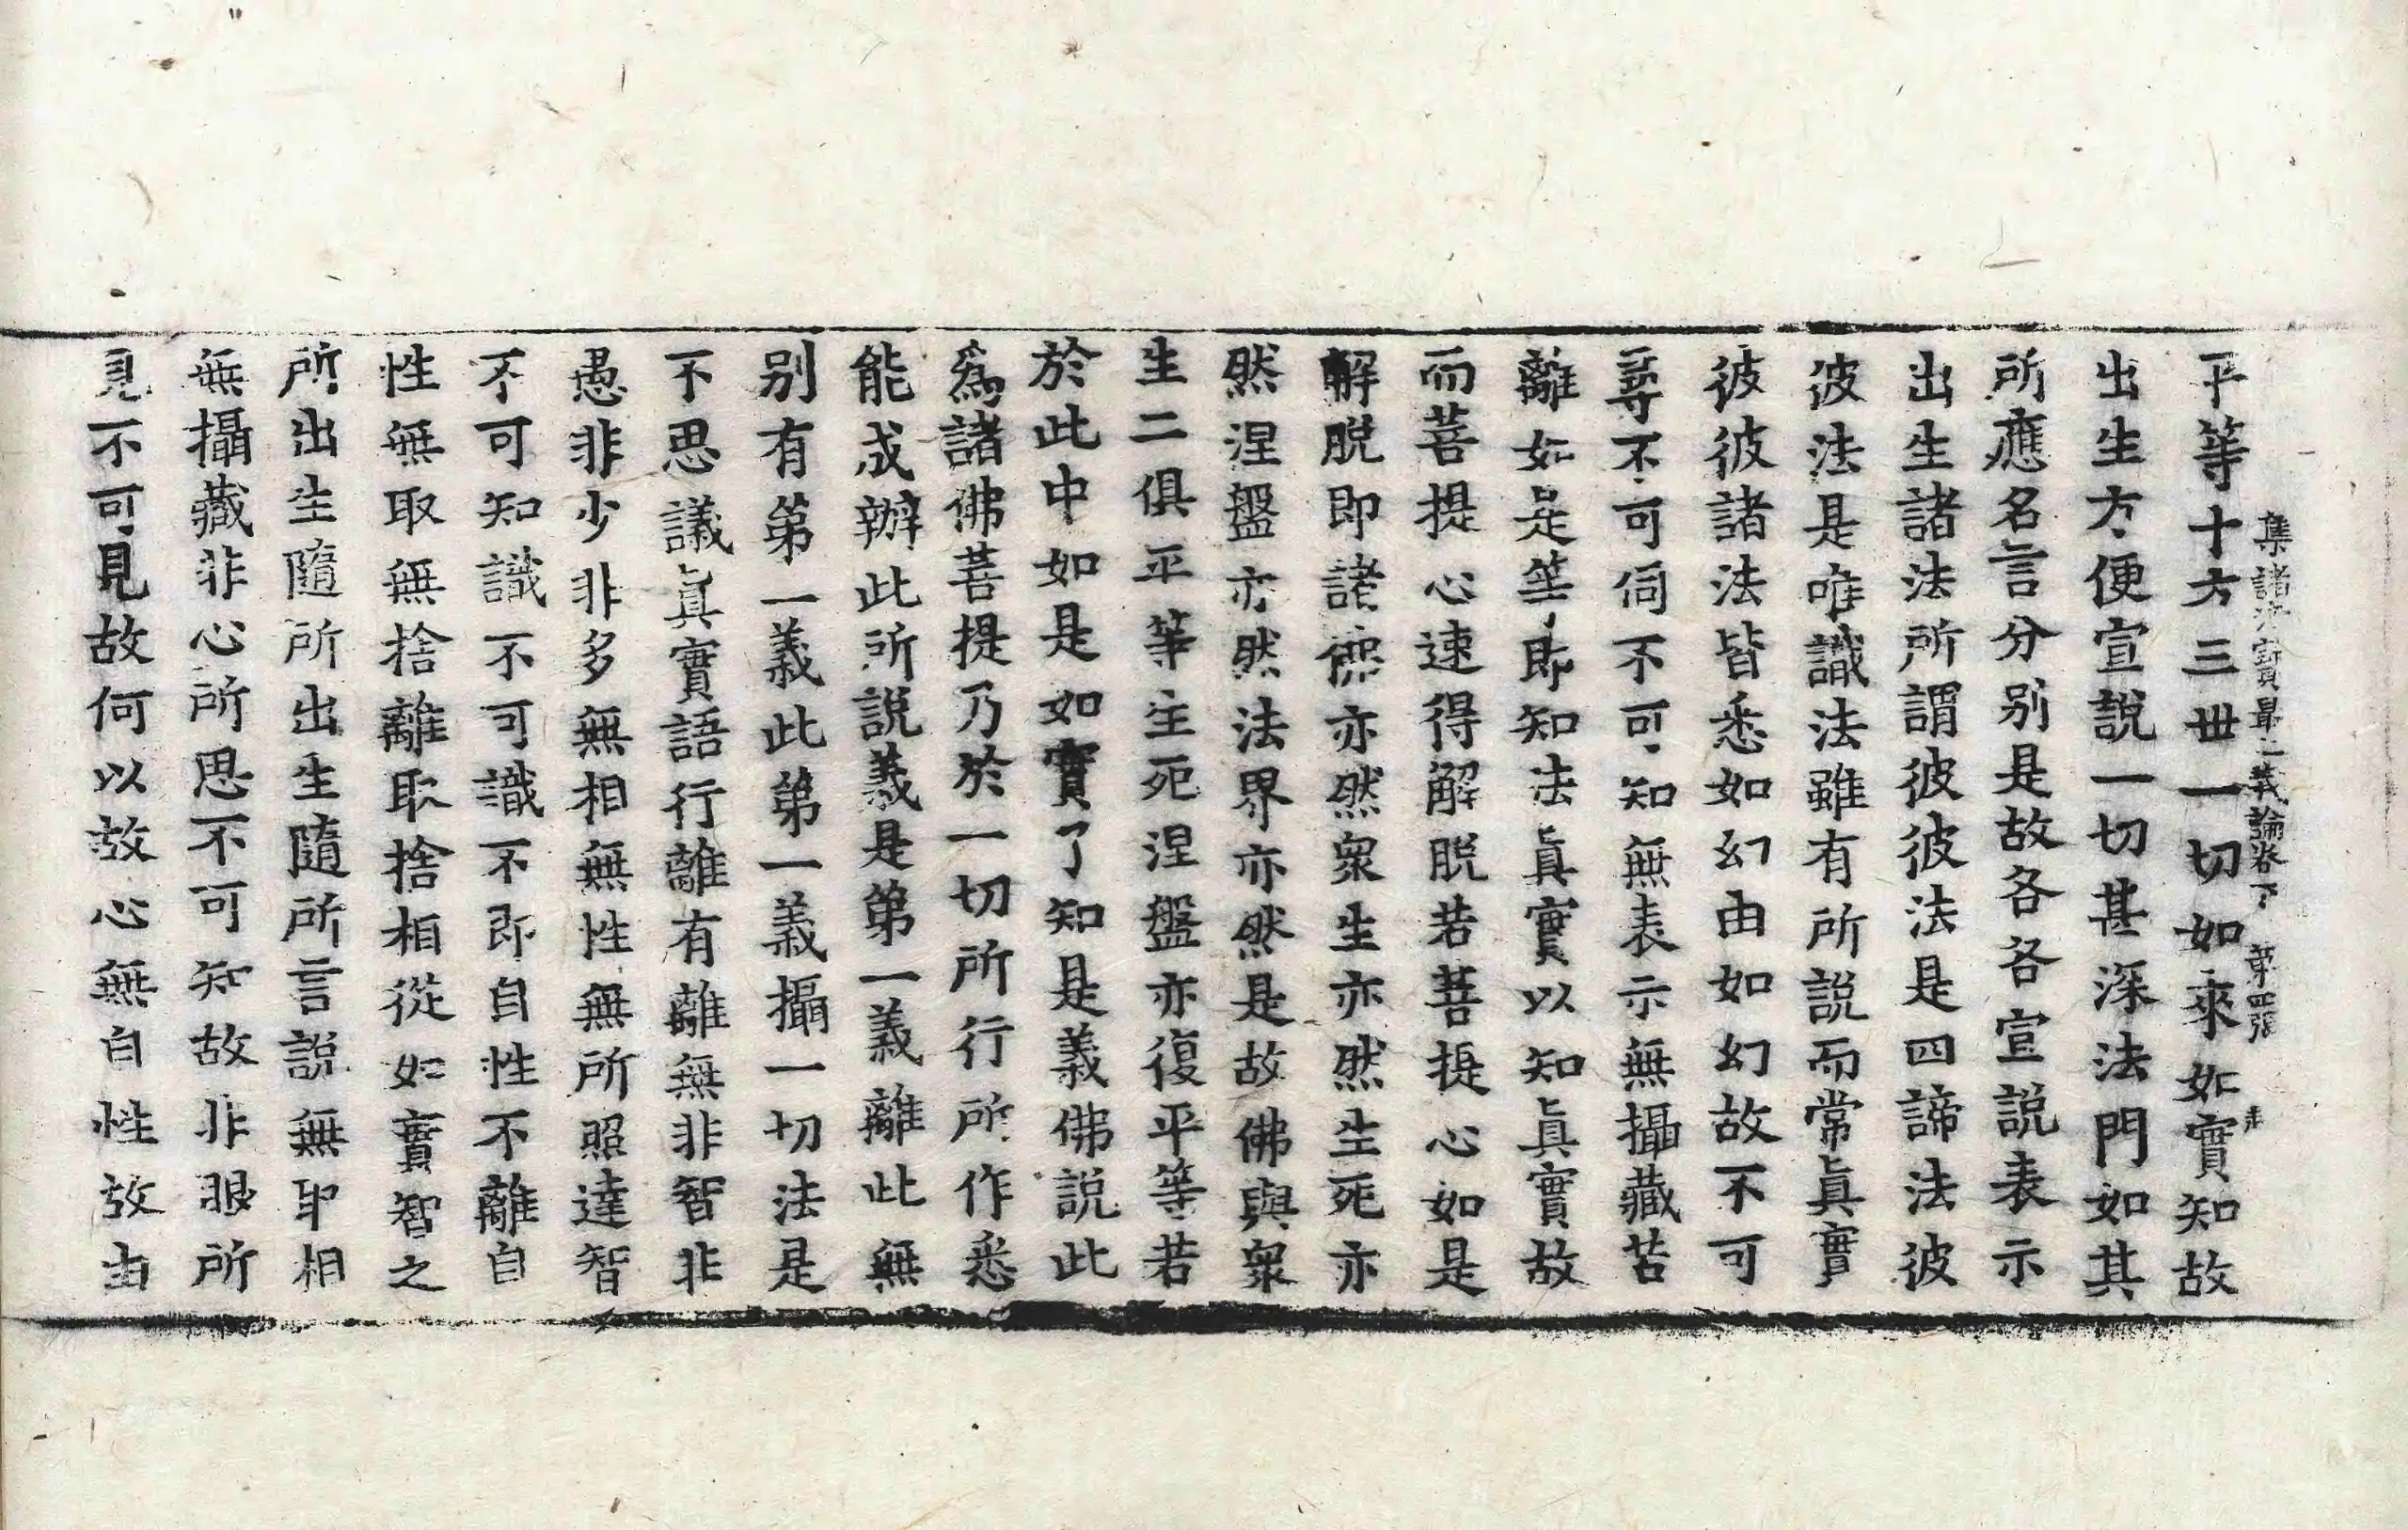 集諸法寶最上義論卷下 第四張 起
平等十方三世一切如來如實知故
出生方便宣說一切甚深法門如其
所應名言分別是故各各宣說表示
出生諸法所謂彼彼法是四諦法彼
彼法是唯識法雖有所說而常眞實
彼彼諸法皆悉如幻由如幻故不可
尋不可伺不可知無表示無攝藏苦
離如是等即知法眞實以知眞實故
而菩提心速得解脫若菩提心如是
解脫即諸佛亦然衆生亦然生死亦
然涅盤亦然法界亦然是故佛與衆
生二俱平等生死涅盤亦復平等若
於此中如是如實了知是義佛說此
爲諸佛菩提乃於一切所行所作悉
能成辦此所說義是第一義離此無
別有第一義此第一義攝一切法是
不思議眞實語行離有離無非智非
愚非少非多無相無性無所照達智
不可知識不可識不即自性不離自
性無取無捨離取捨相從如實智之
所出生隨所出生隨所言說無取相
無攝藏非心所思不可知故非眼所
見不可見故何以故心無自性故由